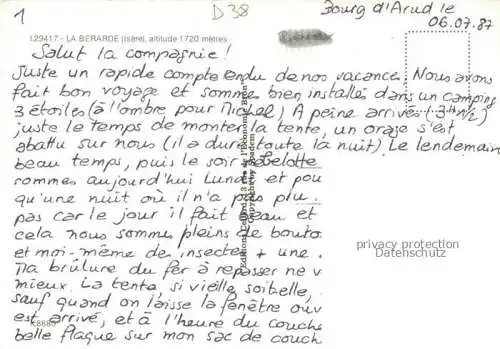 1
D38
Bourg d'Arud le
06.07.87
L29417 - LA BERARDE (Isère), altitude 1720 mètres
Salut la compagnie !
Juste un rapide compte rendu de nos vacances. Nous avons
fait bon voyage et sommes bien installés dans un camping
3 étoiles (à l'ombre pour Michel) A peine arrivés (3H 1/2)
juste le temps de monter la tente, un orage s'est
abattu sur nous (il a duré toute la nuit). Le lendemain
beau temps, puis le soir rebelotte
sommes aujourd'hui Lundi et pou
qu'une nuit où il n'a pas plu.
pas car le jour il fait beau et
cela nous sommes pleins de bouto
et moi-même de insectes + une
Ma brûlure du fer à repasser ne v
mieux. La tente, si vieille soit elle,
sauf quand on laisse la fenêtre ouv
est arrivé, et à l'heure du couche
belle flaque sur mon sac de couch
privacy protection
Datenschutz